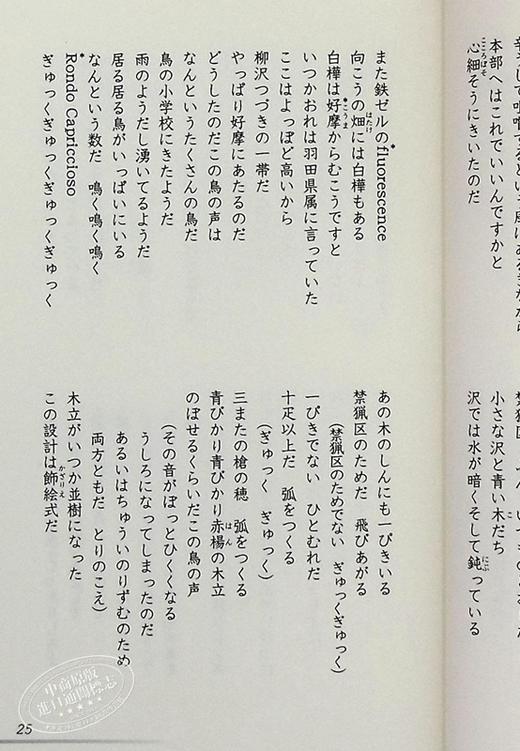 本部へはこれでいいんですかと
心細そうにきいたのだ
こころぼそ
小さな沢と青い木だち
こ
沢では水が暗くそして鈍っている
にぶ
また鉄ゼルのfluorescence
向こうの畑には白樺もある
はたけ
白樺は好摩からむこうですと
こうま
いつかおれは羽田県属に言っていた
ここはよっぽど高いから
柳沢つづきの一帯だ
やっぱり好摩にあたるのだ
どうしたのだこの鳥の声は
なんというたくさんの鳥だ
鳥の小学校にきたようだ
雨のようだし湧いてるようだ
居る居る鳥がいっぱいにいる
なんという数だ 鳴く鳴く鳴く
Rondo Capriccioso
ぎゅっくぎゅっくぎゅっくぎゅっく
あの木のしんにも一ぴきいる
禁猟区のためだ 飛びあがる
(禁猟区のためでない ぎゅっくぎゅっく)
一ぴきでない ひとむれだ
十疋以上だ 弧をつくる
(ぎゅっく ぎゅっく)
三またの槍の穂 弧をつくる
青びかり青びかり赤楊の木立
はん
のぼせるくらいだこの鳥の声
(その音がぼっとひくくなる
うしろになってしまったのだ
あるいはちゅういのりずむのため
両方ともだ とりのこえ)
木立がいつか並樹になった
この設計は飾絵式だ
かざりえ
25
中商原版
進口通關標志